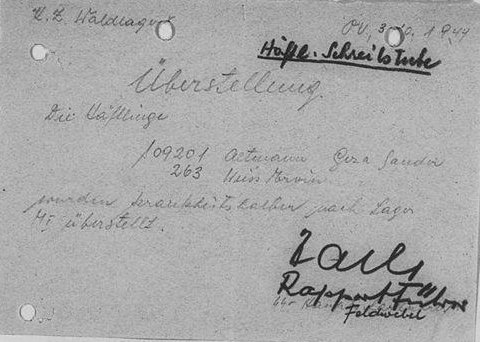 K. Z. Waldlager V
OU, 3.10.1944
Häftl.-Schreibstube
Überstellung.
Die Häftlinge
109201 Aetmann Geza Sandor
263 Weiss Ervin
wurden krankheitshalber nach Lager
M1 überstellt.
Rapportführer
Feldwebel